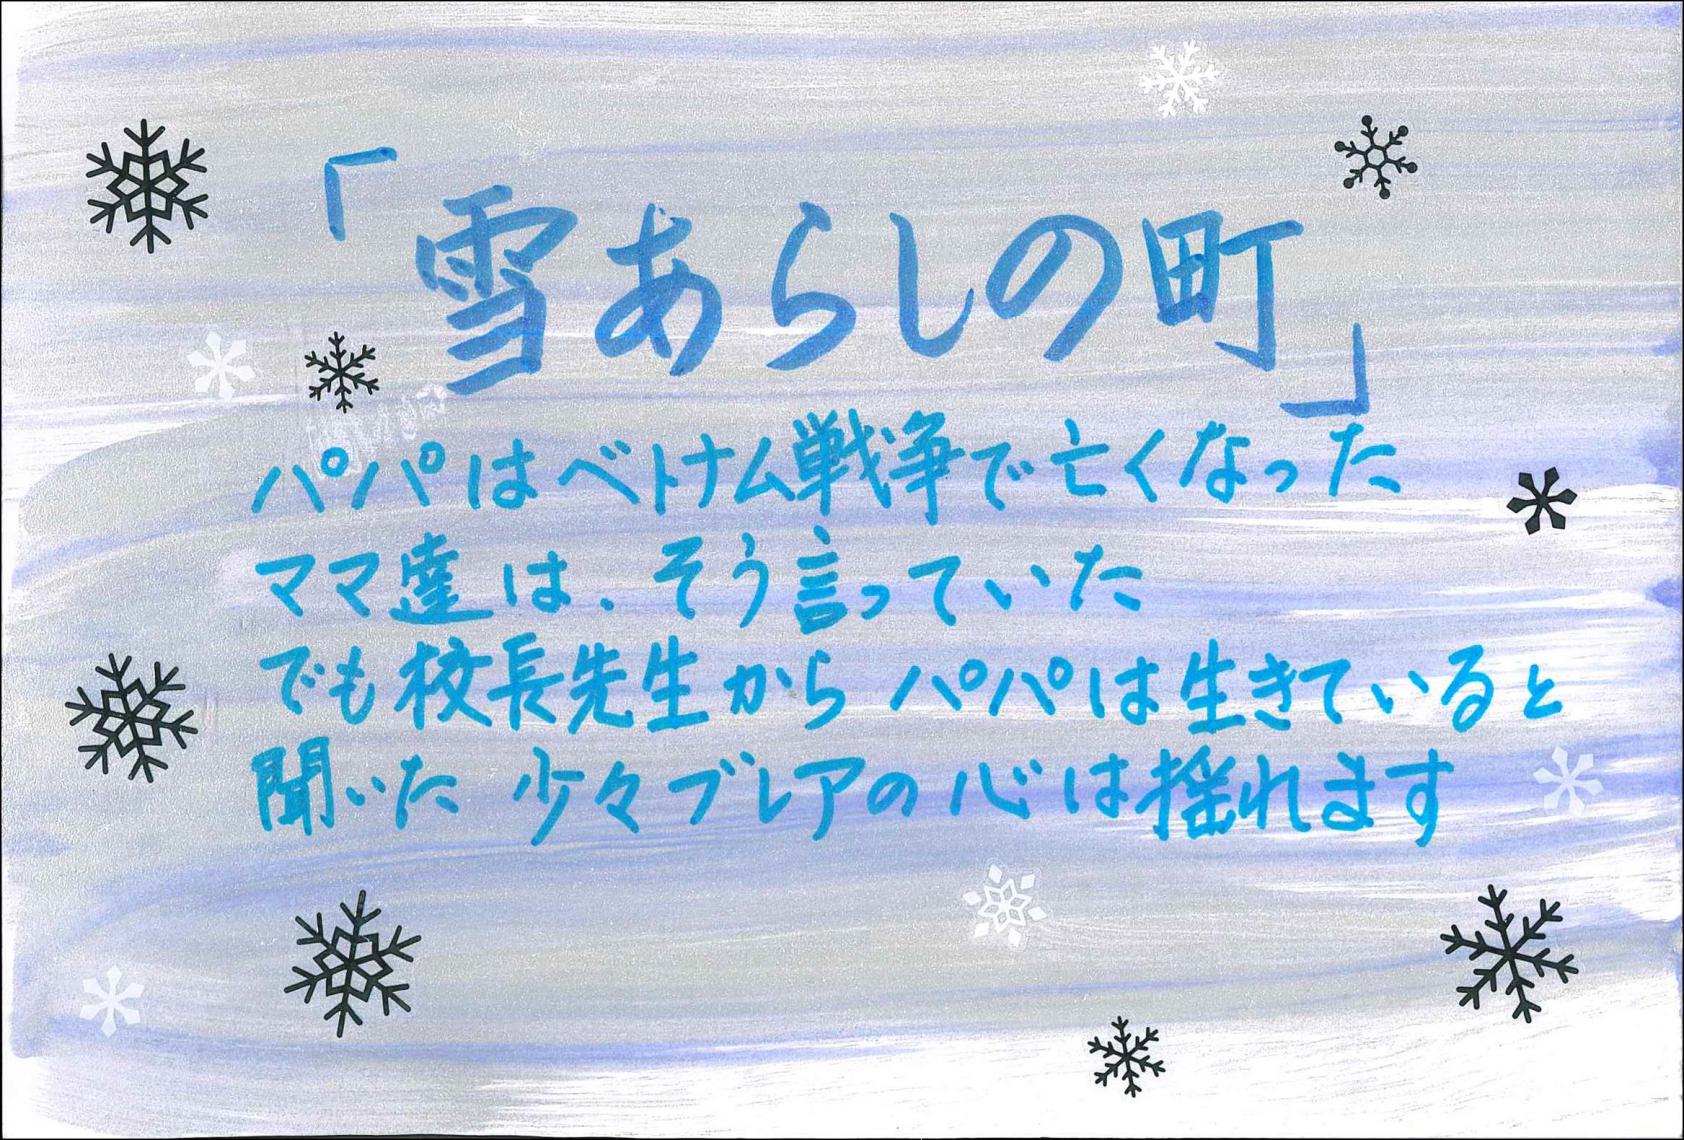 「雪あらしの町」
パパはベトナム戦争で亡くなった
ママ達は、そう言っていた
でも校長先生からパパは生きていると
聞いた 少々ブレアの心は揺れます